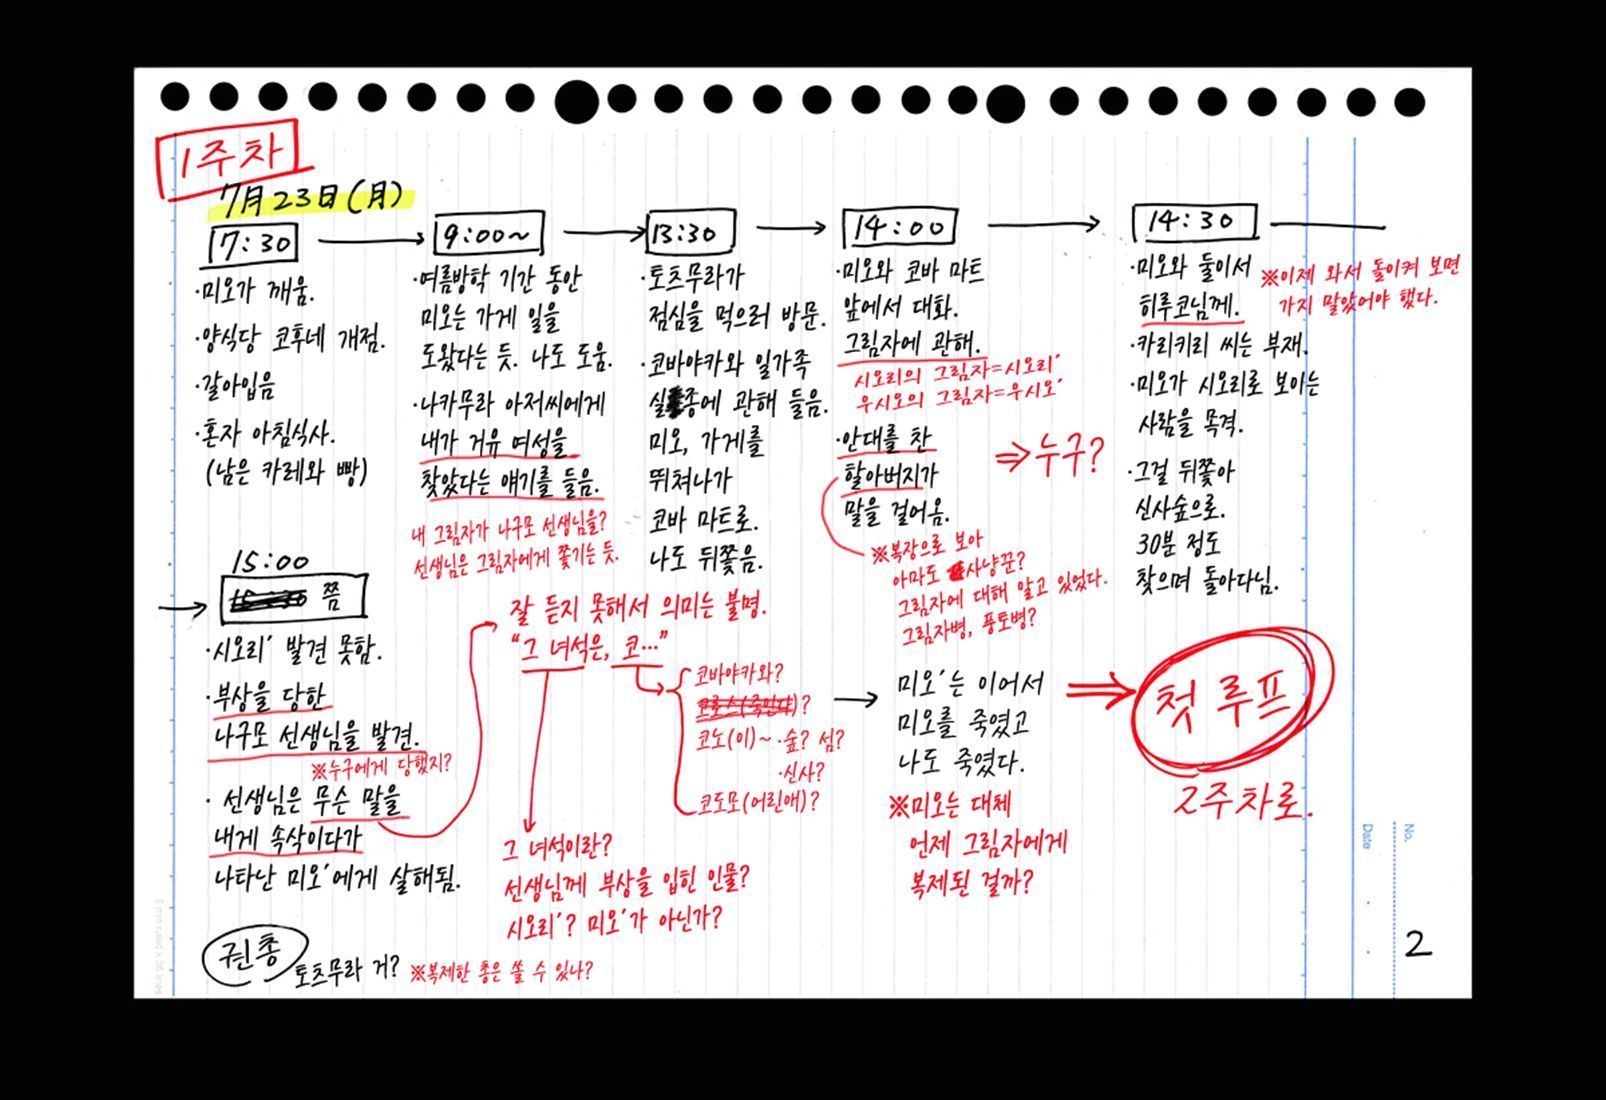 1주차
7月23日(月)
7:30
·미오가 깨움.
·양식당 코후네 개점.
·갈아입음
·혼자 아침식사.
(남은 카레와 빵)
9:00~
·여름방학 기간 동안
미오는 가게 일을
도왔다는 듯. 나도 도움.
·나카무라 아저씨에게
내가 거유 여성을
찾았다는 얘기를 들음.
내 그림자가 나구모 선생님을?
선생님은 그림자에게 쫓기는 듯.
13:30
·토츠무라가
점심을 먹으러 방문.
·코바야카와 일가족
실종에 관해 들음.
미오, 가게를
뛰쳐나가
코바 마트로.
나도 뒤쫓음.
14:00
·미오와 코바 마트
앞에서 대화.
그림자에 관해.
시오리의 그림자=시오리′
우시오의 그림자=우시오′
·안대를 찬
할아버지가
말을 걸어옴.
⇒누구?
※복장으로 보아
아마도 사냥꾼?
그림자에 대해 알고 있었다.
그림자병, 풍토병?
14:30
·미오와 둘이서
히루코님께.
※이제 와서 돌이켜 보면
가지 말았어야 했다.
·카리키리 씨는 부재.
·미오가 시오리로 보이는
사람을 목격.
·그걸 뒤쫓아
신사숲으로.
30분 정도
찾으며 돌아다님.
15:00
쯤
·시오리′ 발견 못함.
·부상을 당한
나구모 선생님을 발견.
※누구에게 당했지?
·선생님은 무슨 말을
내게 속삭이다가
나타난 미오′에게 살해됨.
잘 듣지 못해서 의미는 불명.
"그 녀석은, 코…"
코바야카와?
코로스(죽인다)?
코노(이)~ ·숲? 섬?
·신사?
코도모(어린애)?
그 녀석이란?
선생님께 부상을 입힌 인물?
시오리′? 미오′가 아닌가?
미오′는 이어서
미오를 죽였고
나도 죽였다.
※미오는 대체
언제 그림자에게
복제된 걸까?
첫 루프
2주차로.
권총
토츠무라 거? ※복제한 총은 쓸 수 있나?
No.
Date
2